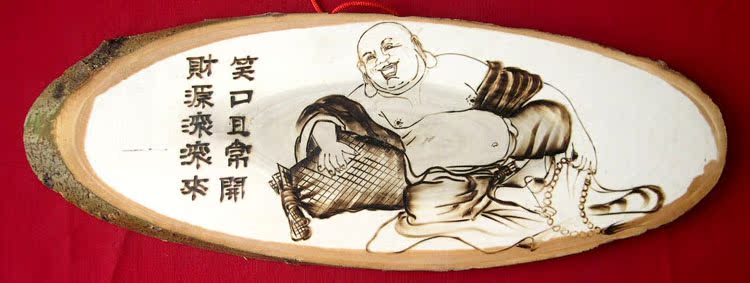 笑口且常開
財源滾滾來